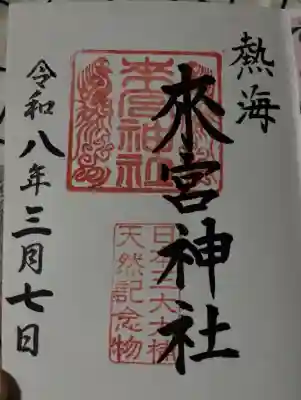 熱海
來宮神社
來宮神社
日本三大大楠
天然記念物
令和八年三月七日